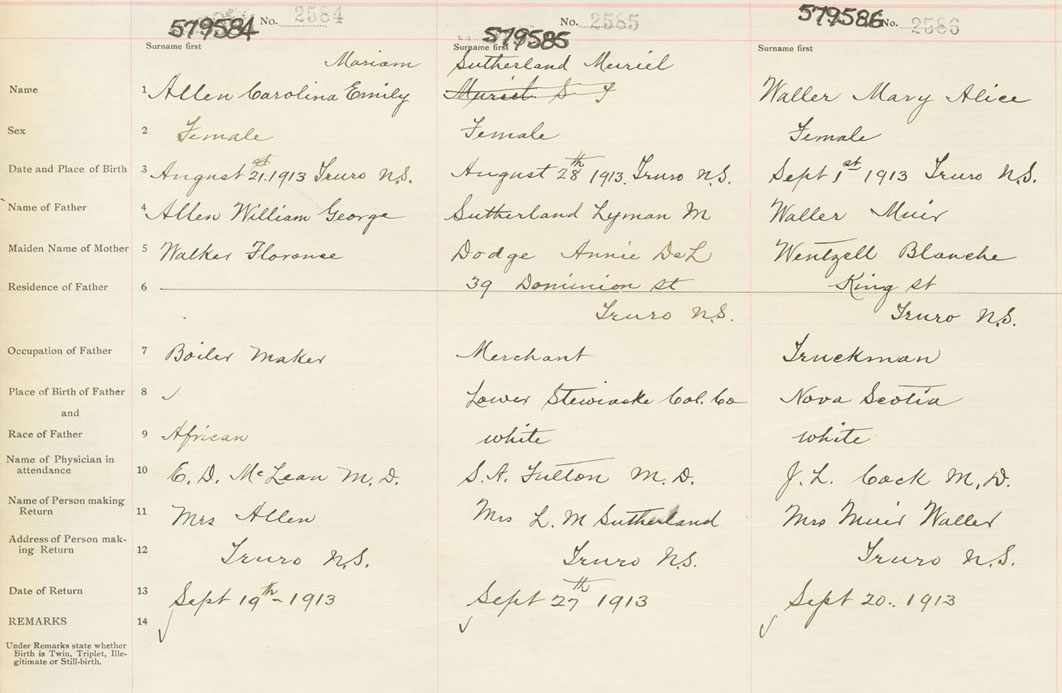 579584 No. 2584 579585 No. 2585 579586 No. 2586
Surname first Surname first Surname first
Mariam Sutherland Muriel
Name 1 Allen Carolina Emily Muriel S F Waller Mary Alice
Sex 2 Female Female Female
Date and Place of Birth 3 August 21st. 1913 Truro N.S. August 28th 1913. Truro N.S. Sept 1st 1913 Truro N.S.
Name of Father 4 Allen William George Sutherland Lyman M Waller Muir
Maiden Name of Mother 5 Walker Florence Dodge Annie DeL Wentzell Blanche
Residence of Father 6 39 Dominion St King St
Truro N.S. Truro N.S.
Occupation of Father 7 Boiler Maker Merchant Truckman
Place of Birth of Father 8 ✓ Lower Stewiacke Col. Co Nova Scotia
and
Race of Father 9 African white white
Name of Physician in
attendance 10 E. D. McLean M.D. S. A. Fulton M.D. J. L. Cock M.D.
Name of Person making
Return 11 Mrs Allen Mrs L. M Sutherland Mrs Muir Waller
Address of Person mak-
ing Return 12 Truro N.S. Truro N.S. Truro N.S.
Date of Return 13 Sept 19th - 1913 Sept 27th 1913 Sept 20. 1913
REMARKS 14 ✓ ✓ ✓
Under Remarks state whether
Birth is Twin, Triplet, Ille-
gitimate or Still-birth.